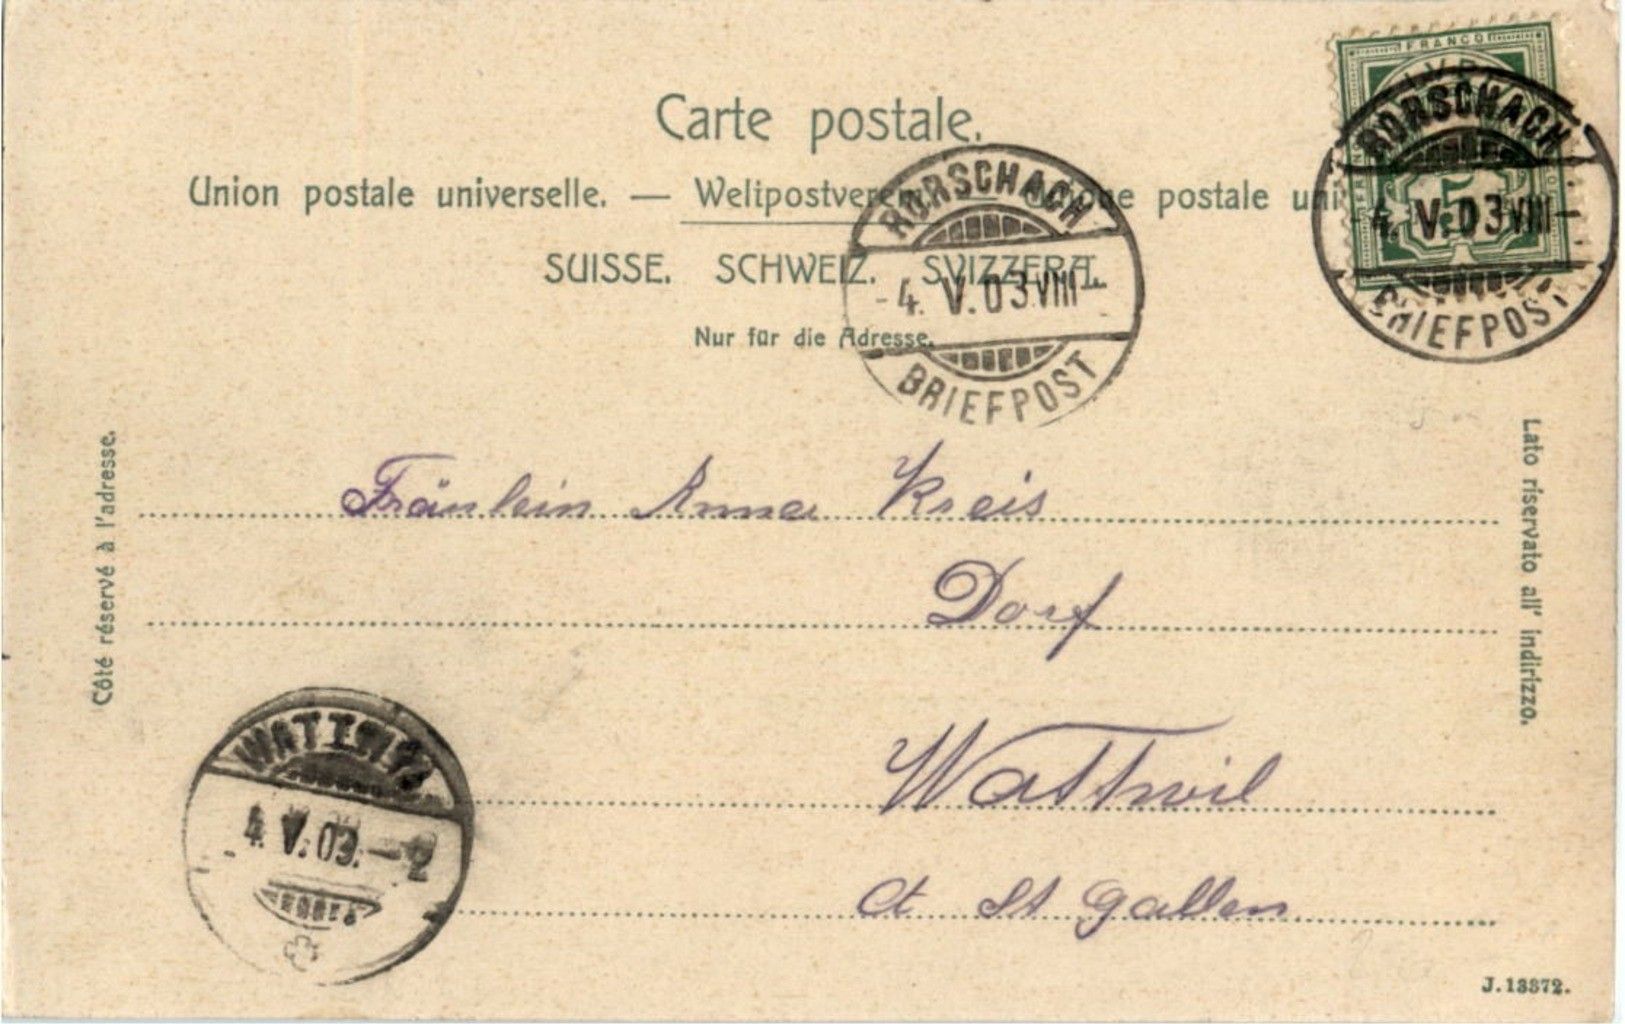 FRANCO
Carte postale.
Union postale universelle. — Weltpostverein. — Unione postale uni
SUISSE. SCHWEIZ. SVIZZERA.
Nur für die Adresse.
RORSCHACH
-4. V.03.VIII-
BRIEFPOST
5
RORSCHACH
-4. V.03VIII-
BRIEFPOST
Côté réservé à l'adresse.
Lato riservato all' indirizzo.
Fräulein Anna Kreis
Dorf
Wattwil
Ct St Gallen
WATTWIL
4. V. 03.-2
J.13372.